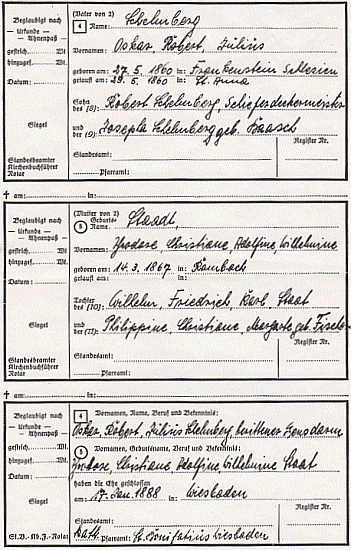 Beglaubigt nach
— Urkunde —
— Ahnenpaß —
gestrich. Wt.
hinzugef. Wt.
Datum:
Siegel
Standesbeamter
Kirchenbuchführer
Notar
(Vater von 2)
4 Name: Schelmberg
Vornamen: Oskar, Robert, Julius
geboren am: 27. 5. 1860 in: Frankenstein Schlesien
getauft am: 29. 5. 1860 in: St. Anna
Sohn des (8): Robert Schelmberg, Schieferdeckermeister
und der (9): Josepha Schelmberg geb. Haasch
Standesamt: Register Nr.
Pfarramt:
† am: in:
Beglaubigt nach
— Urkunde —
— Ahnenpaß —
gestrich. Wt.
hinzugef. Wt.
Datum:
Siegel
Standesbeamter
Kirchenbuchführer
Notar
(Mutter von 2)
5 Geburts-Name: Staadt,
Vornamen: Christiane, Adolfine, Wilhelmine
geboren am: 14. 3. 1867 in: Rambach
getauft am: in:
Tochter des (10): Wilhelm, Friedrich, Karl Staat
und der (11): Philippine, Christiane, Margarte geb.
Register Nr.
Standesamt:
Pfarramt:
† am: in:
Beglaubigt nach
— Urkunde —
— Ahnenpaß —
gestrich. Wt.
hinzugef. Wt.
Datum:
Siegel
St.B.-Kb.F.-Notar
4 Vornamen, Name, Beruf und Bekenntnis:
Oskar, Robert, Julius Schelmberg, berittener Gensdarm
5 Vornamen, Geburtsname, Beruf und Bekenntnis:
Christiane, Adolfine Wilhelmine Staat
haben die Ehe geschlossen
am: 17. Jan. 1888 in: Wiesbaden
Standesamt: Register Nr.
Kath. Pfarramt: St. Bonifatius Wiesbaden